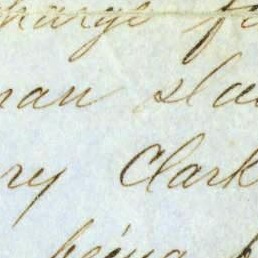 charge fo
man sla
ry Clark
being